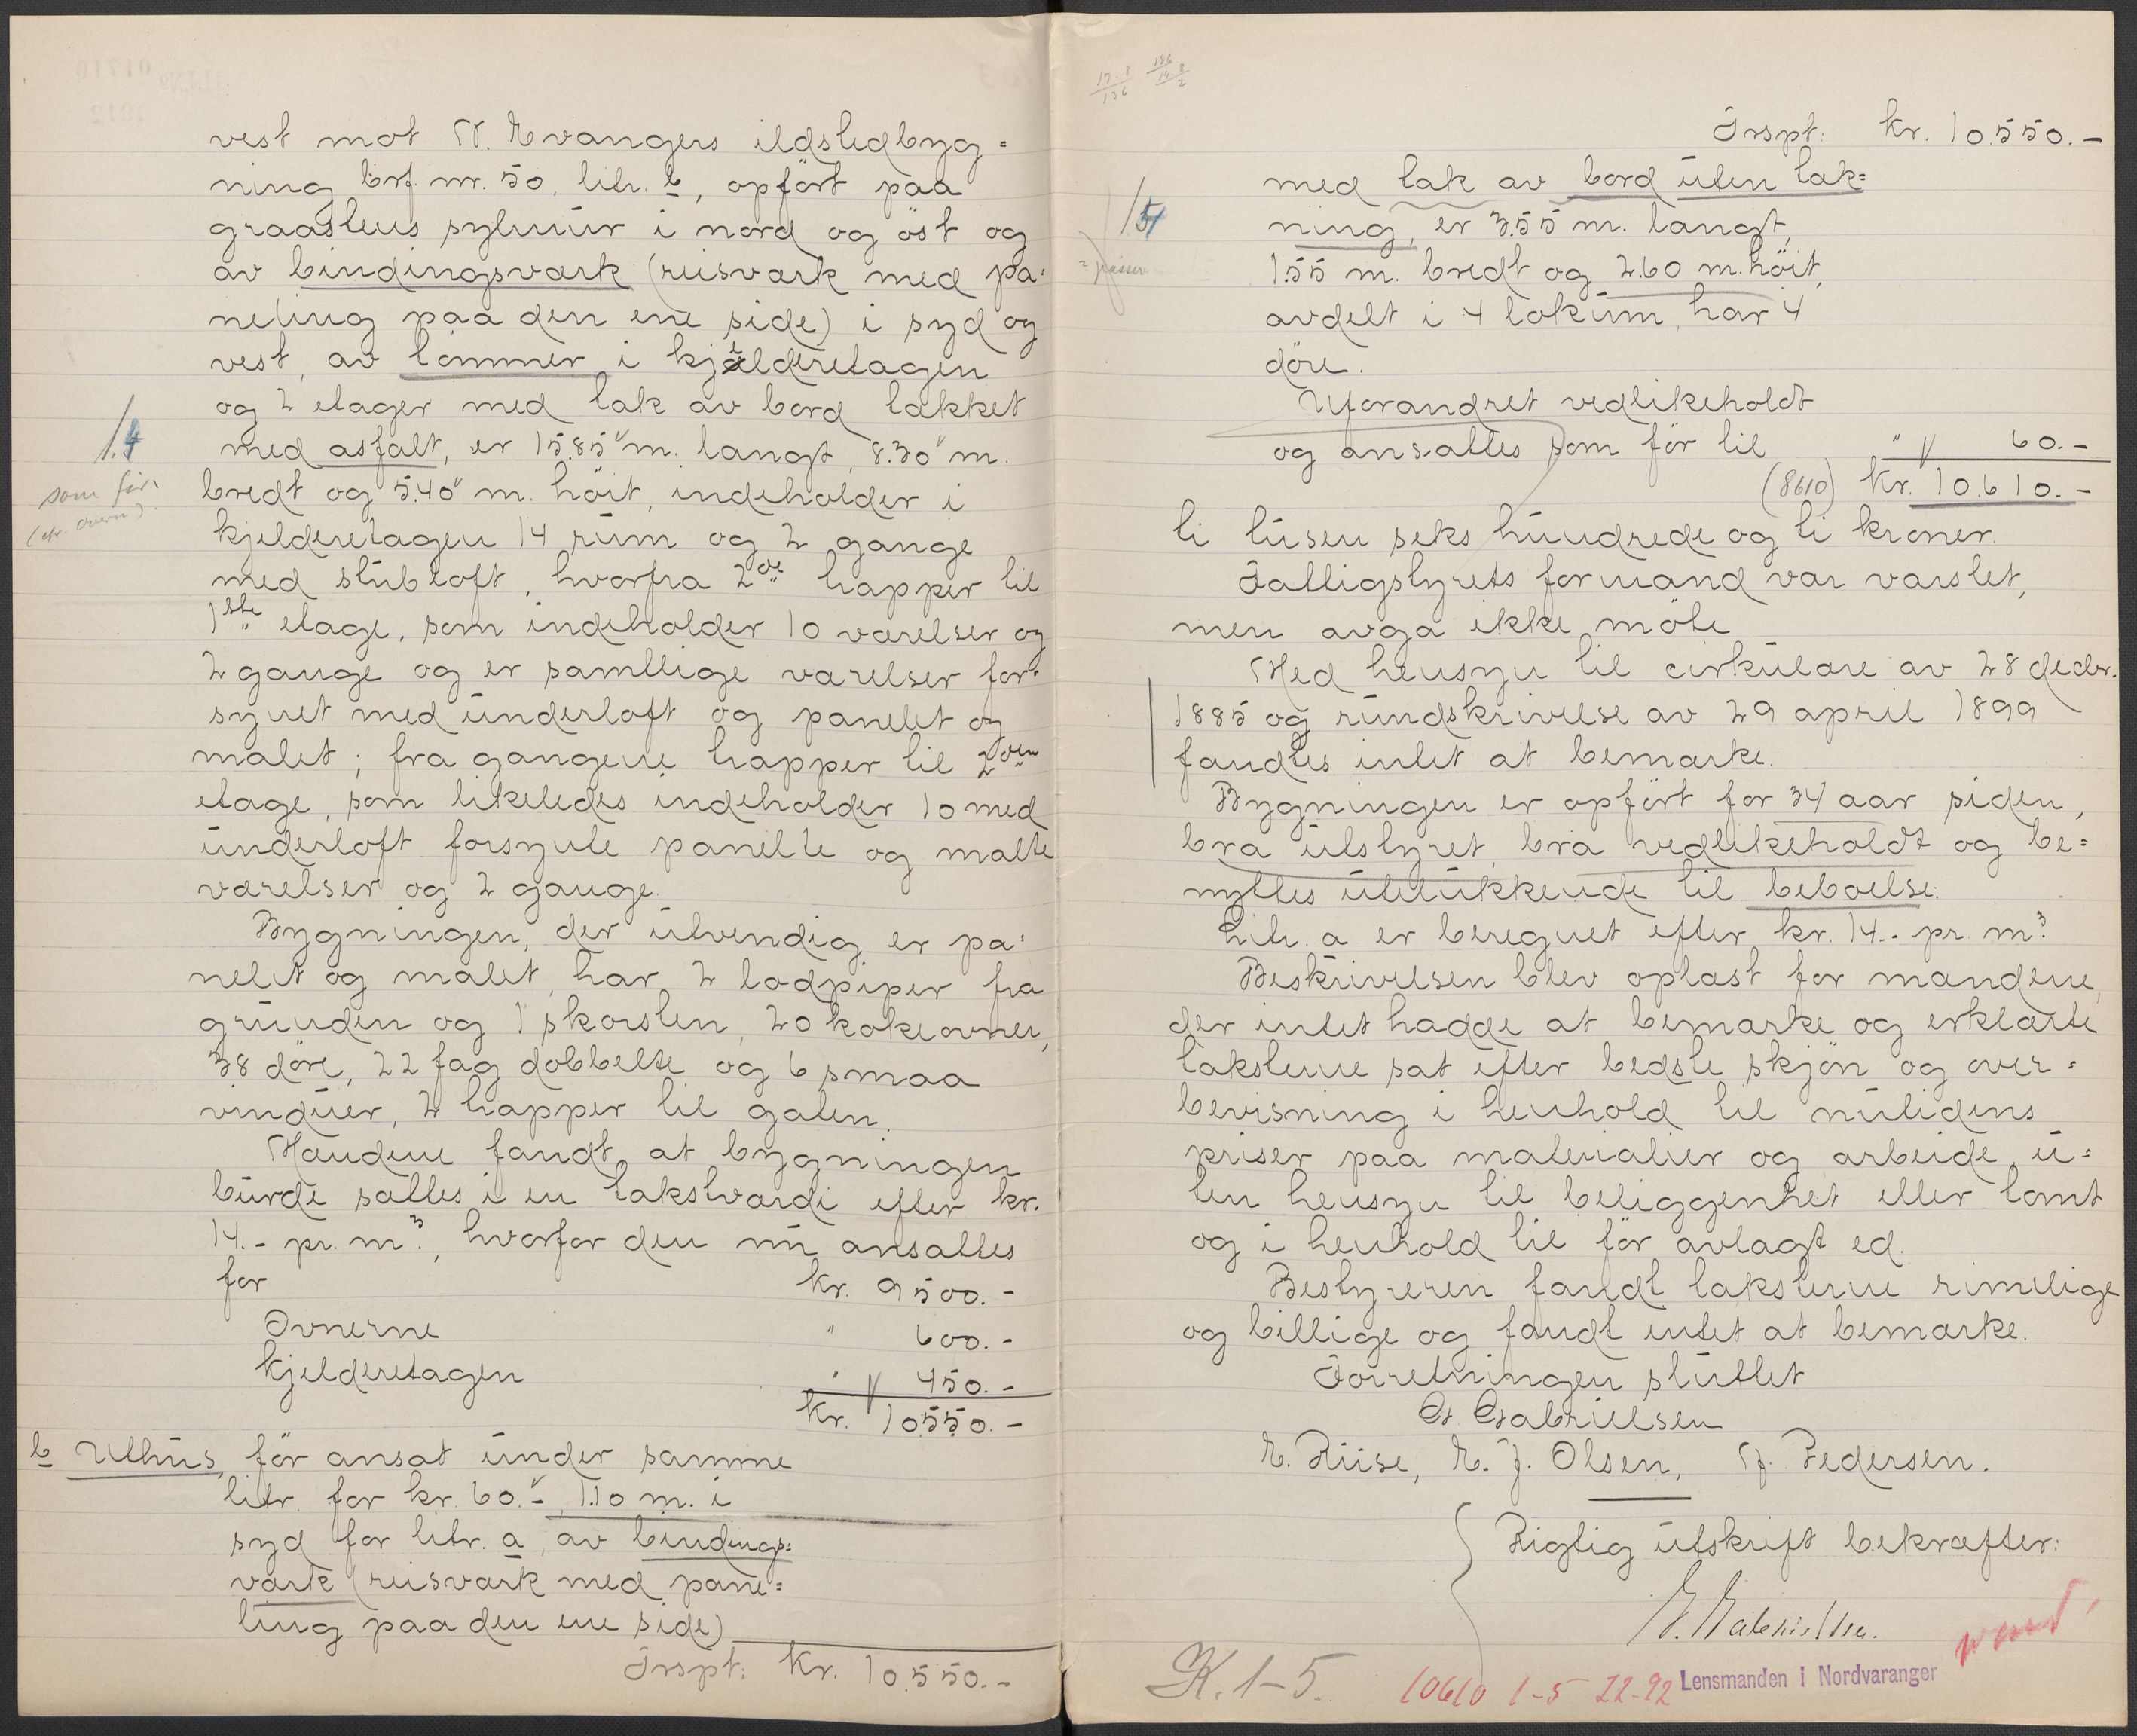 vest mot N. Evangers ildstedbyg=
ning brf. nr. 50, litr. b, opført paa
graastens sylmur i nord og øst og
av bindingsverk (reisverk med pa=
neling paa den ene side) i syd og
vest, av tømmer i kjelderetagen
og 2 etager med tak av bord takket
1.4
med asfalt, er 15.85 m. langt, 8.30 m.
som før.
bredt og 5.40 m. høit, indeholder i
kjelderetagen 14 rum og 2 gange
med stubloft, hvorfra 2de trapper til
1ste etage, som indeholder 10 værelser og
2 gange og er samtlige værelser for=
synet med underloft og panelet og
malet; fra gangene trapper til 2den
etage, som likeledes indeholder 10 med
underloft forsynte panelte og malte
værelser og 2 gange.
Bygningen, der utvendig er pa=
nelet og malet, har 2 lodpiper fra
grunden og 1 skorsten, 20 kokeovner,
38 døre, 22 fag dobbelte og 6 smaa
vinduer, 2 trapper til gaten.
Mændene fandt at bygningen
burde sættes i en takstværdi efter kr.
14.- pr. m³, hvorfor den nu ansættes
for kr. 9500.-
Ovnerne " 600.-
Kjelderetagen " 450.-
kr. 10550.-
b Uthus, før ansat under samme
litr. for kr. 60.-, 1.10 m. i
syd for litr. a, av bindings=
værk (reisværk med pane=
ling paa den ene side)
Trspt: kr. 10.550.-
Trspt: kr. 10.550.-
med tak av bord uten tak=
1/5
ning, er 3.55 m. langt,
1.55 m. bredt og 2.60 m. høit,
avdelt i 4 lokum, har 4
døre.
Uforandret vedlikeholdt
og ansættes som før til " 60.-
(8610) Kr. 10.610.-
ti tusen seks hundrede og ti kroner.
Fattigstyrets formand var varslet,
men avga ikke møte
Med hensyn til cirkulære av 28 decbr.
1885 og rundskrivelse av 29 april 1899
fandtes intet at bemærke.
Bygningen er opført for 34 aar siden,
bra utstyret, bra vedlikeholdt og be=
nyttes utelukkende til beboelse.
Litr. a er beregnet efter kr. 14.- pr. m³.
Beskrivelsen blev oplæst for mændene,
der intet hadde at bemærke og erklærte
taksterne sat efter bedste skjøn og over=
bevisning i henhold til nutidens
priser paa materialier og arbeide u=
ten hensyn til beliggenhet eller tomt
og i henhold til før avlagt ed.
Bestyreren fandt taksterne rimelige
og billige og fandt intet at bemærke.
Forretningen sluttet
G. Gabrielsen
E. Riise, E. J. Olsen, N. Pedersen.
Rigtig utskrift bekræfter:
G. Gabrielsen.
K. 1-5.
10610 1-5 22-92
Lensmanden i Nordvaranger